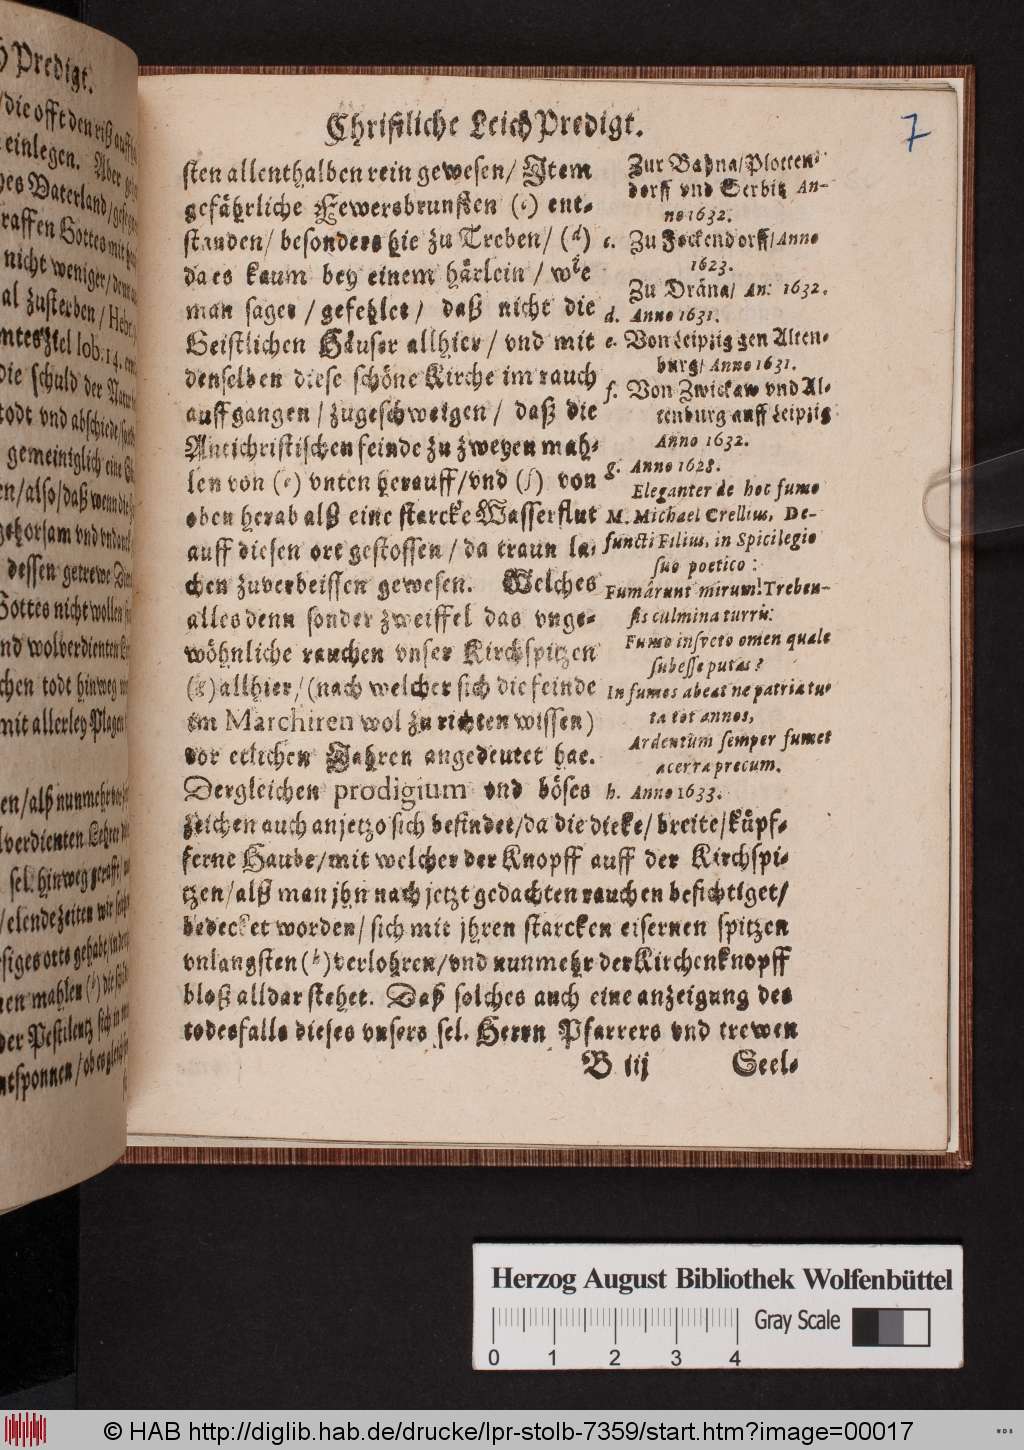 h Predigt.
/die offt den riß auff
einlegen. Aber
Vaterland/
raffen Gottes mit
nicht weniger/
al zusterben/ Hebr.
ntesziel Iob. 14.
die schuld der Natur
todt vnd abschiede
gemeiniglich eine
en/also/daß wenn
gehorsam vnd
dessen getrewe
Gottes nicht wollen
nd wolverdienten
chen todt hinweg
mit allerley Plagen
en/alß nunmehr
lverdienten Lehrer
sel. hinweg gerafft/
/elende zeiten wir
siges orts gehabt/
nen mahlen (b) die
der Pestilentz sich
ntsponnen/
Christliche Leich Predigt.
7
sten allenthalben rein gewesen/ Item
gefährliche Fewersbrunsten (c) ent-
standen/ besonders hie zu Treben/ (d)
da es kaum bey einem härlein / wie
man saget / gefehlet / daß nicht die
Geistlichen Häuser allhier / vnd mit
denselben diese schöne Kirche im rauch
auffgangen / zugeschweigen / daß die
Antichristischen feinde zu zweyen mah-
len von (e) vnten herauff/vnd (f) von
oben herab alß eine starcke Wasserflut
auff diesen ort gestossen / da traun la-
chen zuverbeissen gewesen. Welches
alles denn sonder zweiffel das vnge-
wöhnliche rauchen vnser Kirchspitzen
(g) allhier/ (nach welcher sich die feinde
im Marchiren wol zu richten wissen)
vor etlichen Jahren angedeutet hat.
Dergleichen prodigium vnd böses
zeichen auch anjetzo sich befindet/da die dicke/ breite/küpf-
ferne Haube/mit welcher der Knopff auff der Kirchspi-
tzen/alß man jhn nach jetzt gedachten rauchen besichtiget/
bedecket worden/ sich mit jhren starcken eisernen spitzen
vnlangsten (h) verlohren/vnd nunmehr der Kirchenknopff
bloß alldar stehet. Daß solches auch eine anzeigung des
todesfalls dieses vnsers sel. Herrn Pfarrers vnd trewen
B iij Seel-
Zur Bahna/Plotten-
dorff vnd Serbitz An-
no 1632.
c. Zu Fockendorff/Anno
1623.
Zu Dräna/ An: 1632.
d. Anno 1631.
e. Von Leipzig gen Alten-
burg/ Anno 1631.
f. Von Zwickaw vnd Al-
tenburg auff Leipzig
Anno 1632.
g. Anno 1628.
Eleganter de hoc fumo
M. Michael Crellius, De-
functi Filius, in Spicilegio
suo poetico:
Fumârunt mirum! Treben-
sis culmina turris:
Fumo insveto omen quale
subesse putas?
In fumos abeat ne patria tu-
ta tot annos,
Ardentûm semper fumet
acerra precum.
h. Anno 1633.
Herzog August Bibliothek Wolfenbüttel
Gray Scale
0 1 2 3 4
© HAB http://diglib.hab.de/drucke/lpr-stolb-7359/start.htm?image=00017